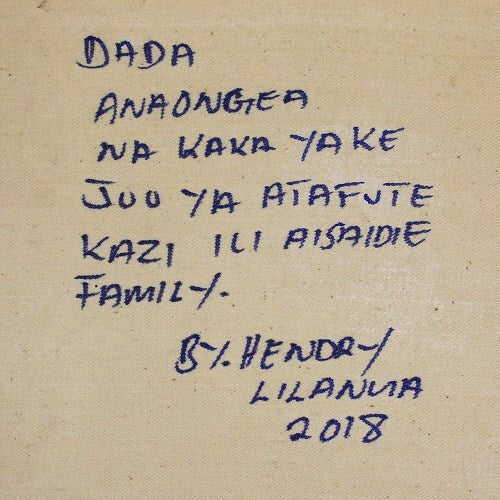 DADA
ANAONGEA
NA KAKA YAKE
JUU YA ATAFUTE
KAZI ILI AISAIDIE
FAMILY.
BY. HENDRY
LILANGA
2018